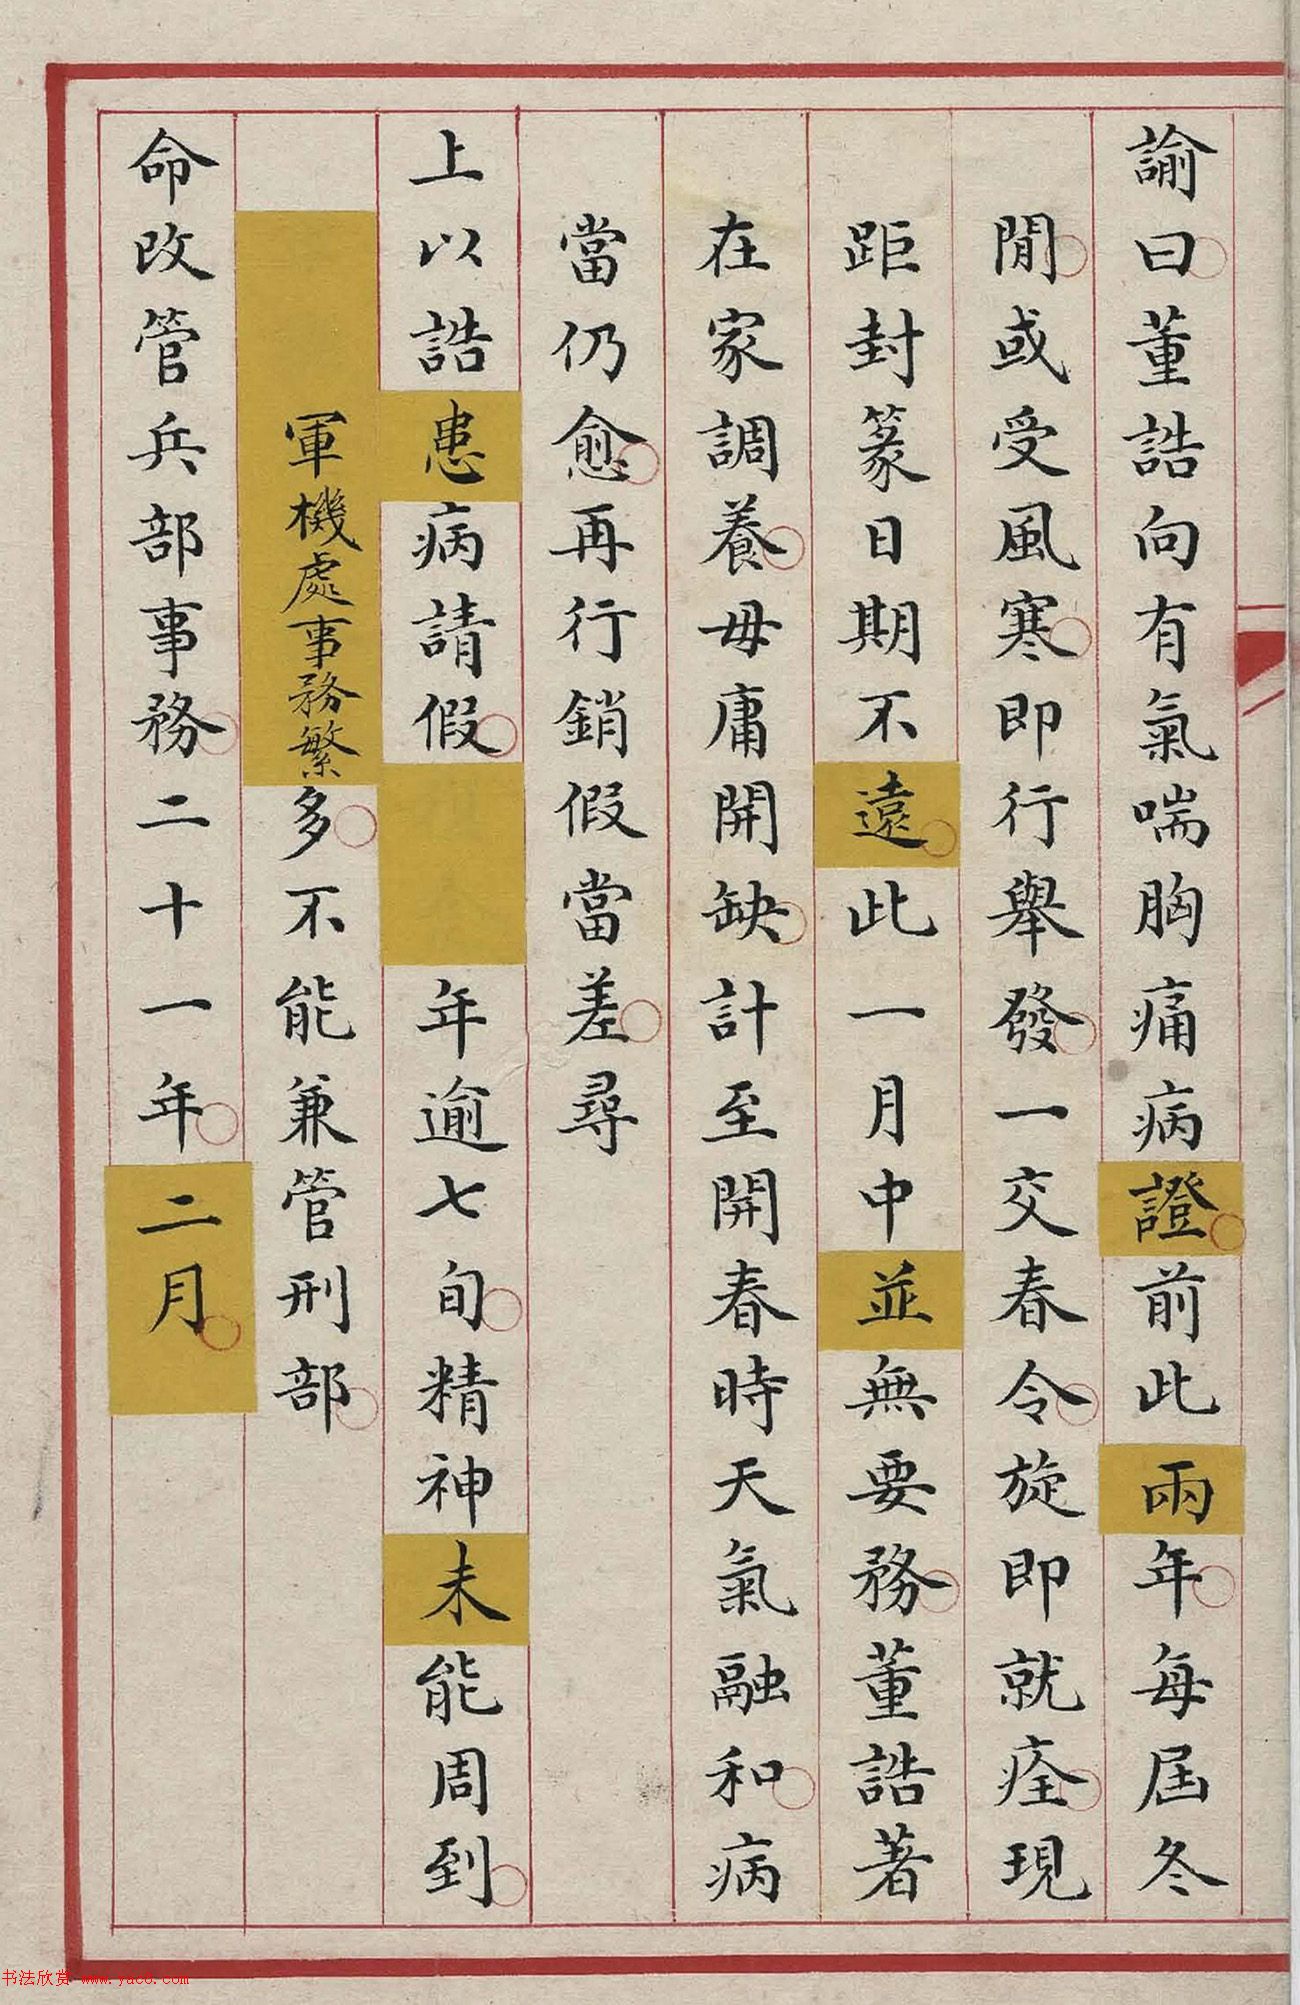 諭曰董誥向有氣喘胸痛病證前此兩年每屆冬
閒或受風寒即行舉發一交春令旋即就痊現
距封篆日期不遠此一月中並無要務董誥著
在家調養毋庸開缺計至開春時天氣融和病
當仍愈再行銷假當差尋
上以誥患病請假年逾七旬精神未能周到
軍機處事務繁多不能兼管刑部
命改管兵部事務二十一年二月
书法欣赏 www.yac8.com